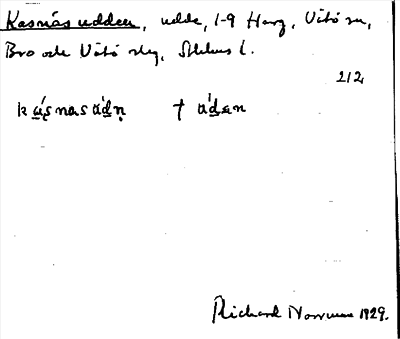 Kasnäsudden, udde, 1-9 Harg, Vätö sn,
Bro och Vätö skg, Sthlms l.
212
kásnasúdn † údən
Richard Norrman 1929.